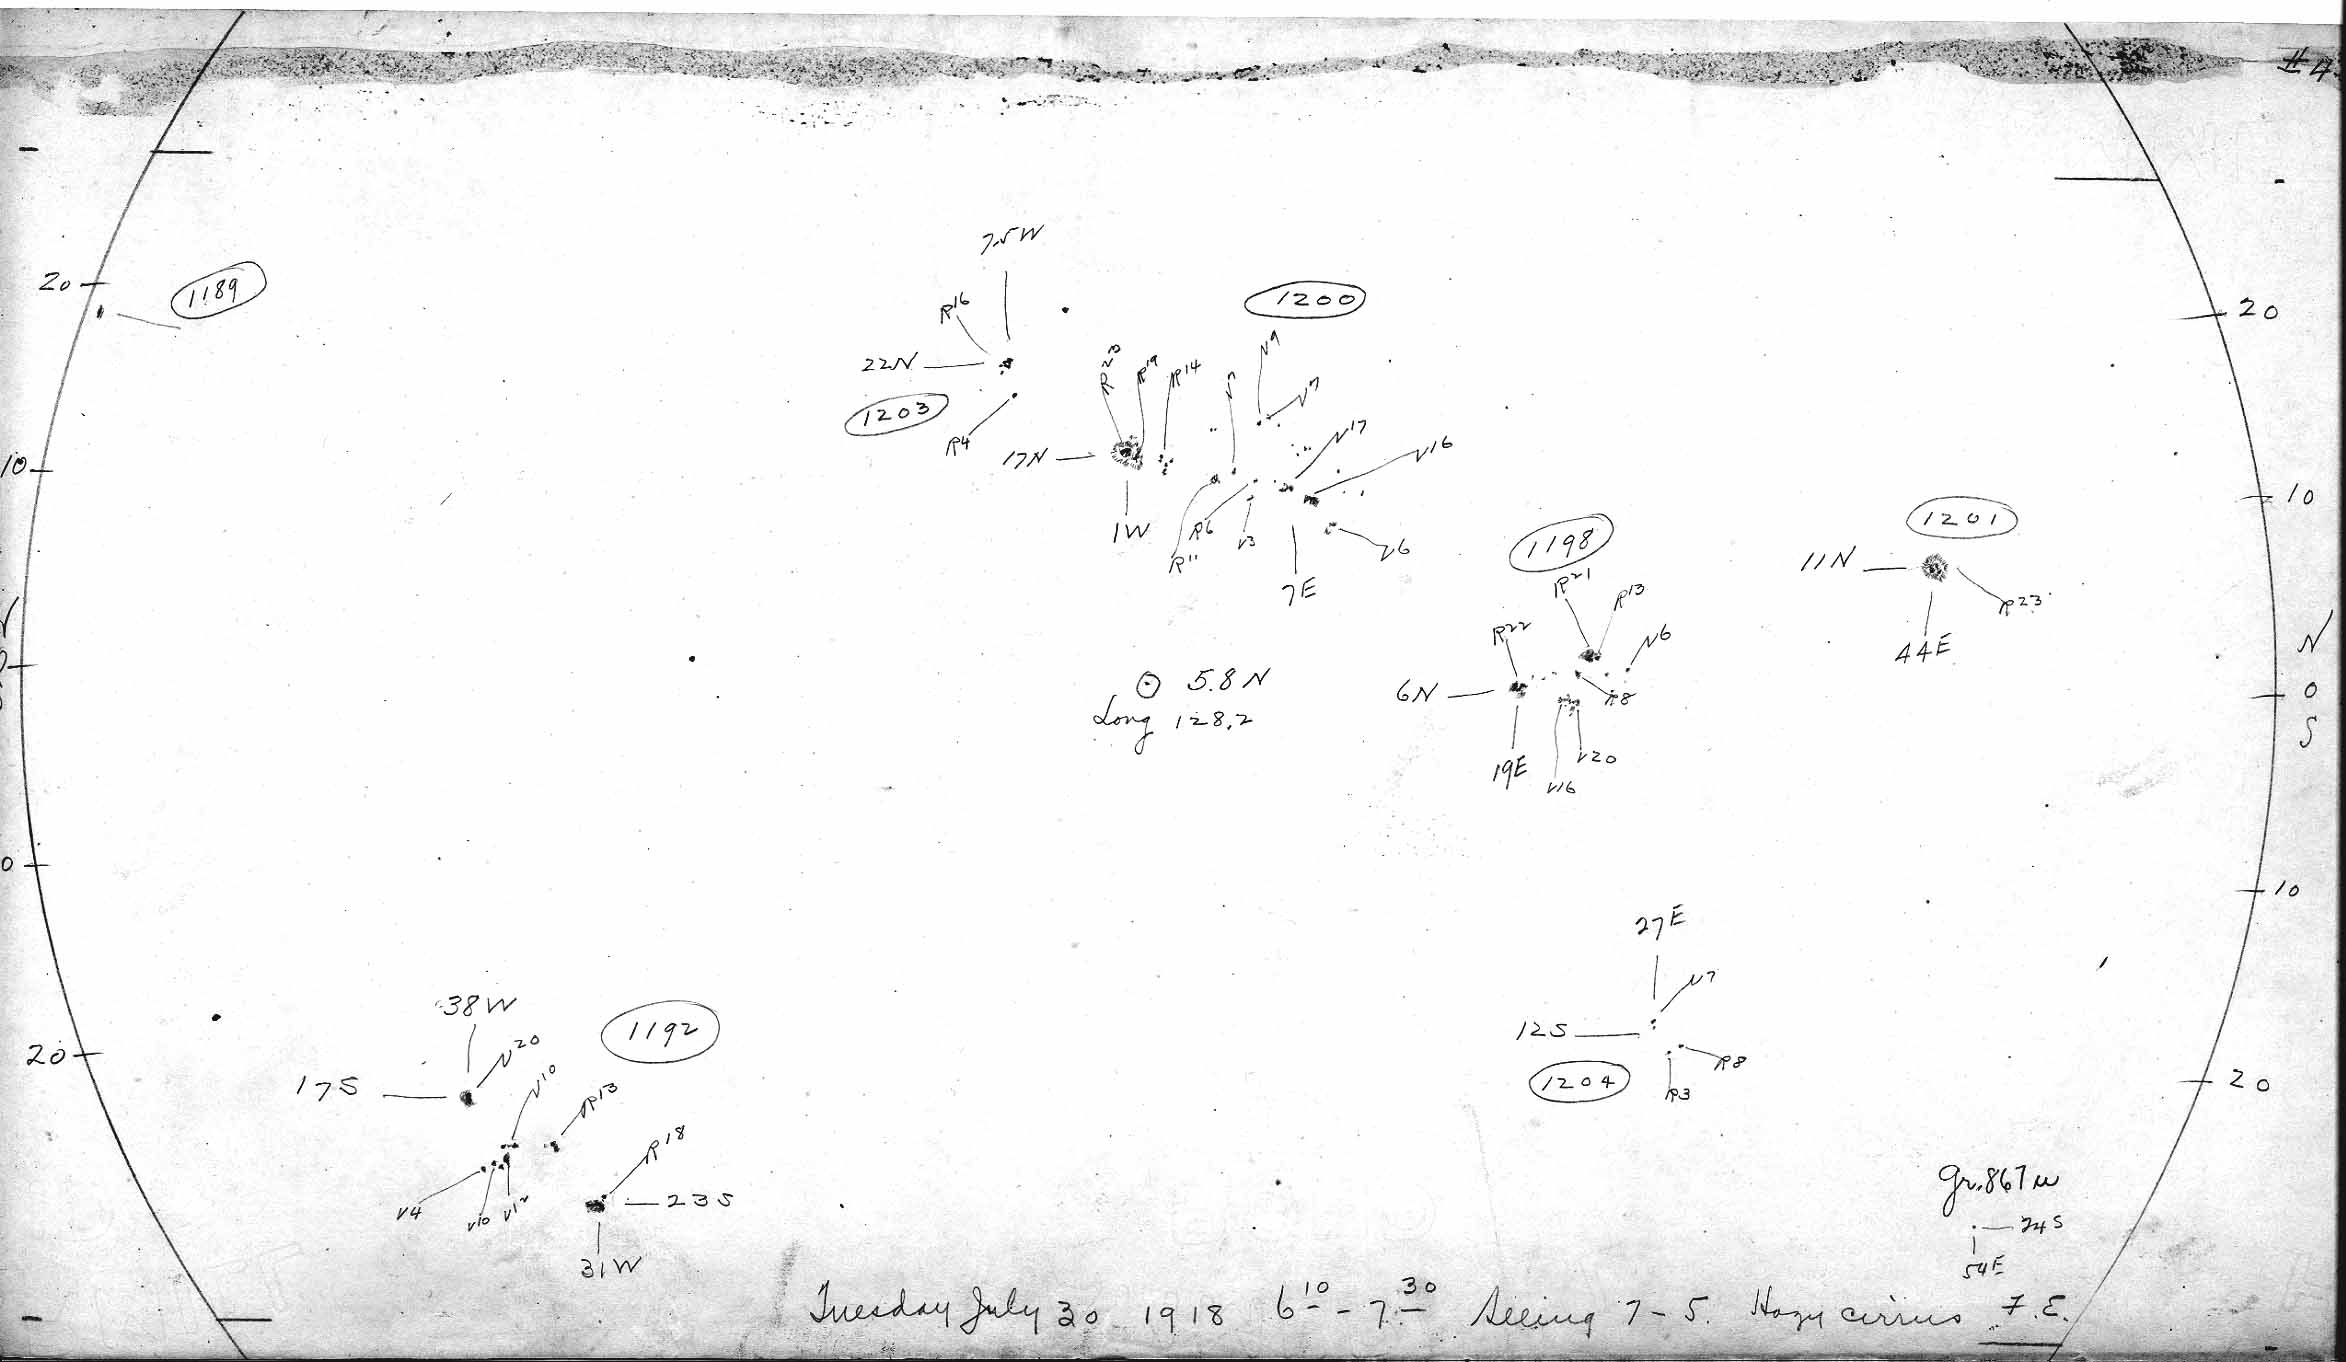 #4
7.5W
20
1189
R16
1200
20
22N
R23
R19
R14
V7
V9
V7
1203
R4
17N
V17
V16
10
10
1W
R11
R6
V3
V6
7E
1198
1201
11N
R23
44E
R21
R13
R22
V6
N
5.8 N
Long 128.2
6N
R8
0
S
19E
V16
V20
0
10
27E
V7
38W
V20
1192
12S
R8
20
17S
V10
R13
1204
R3
20
R18
V4
V10
V12
23S
31W
Gr. 867 w
24S
54E
Tuesday July 30 1918 6 10 - 7 30 Seeing 7-5. Hazy cirrus F.E.